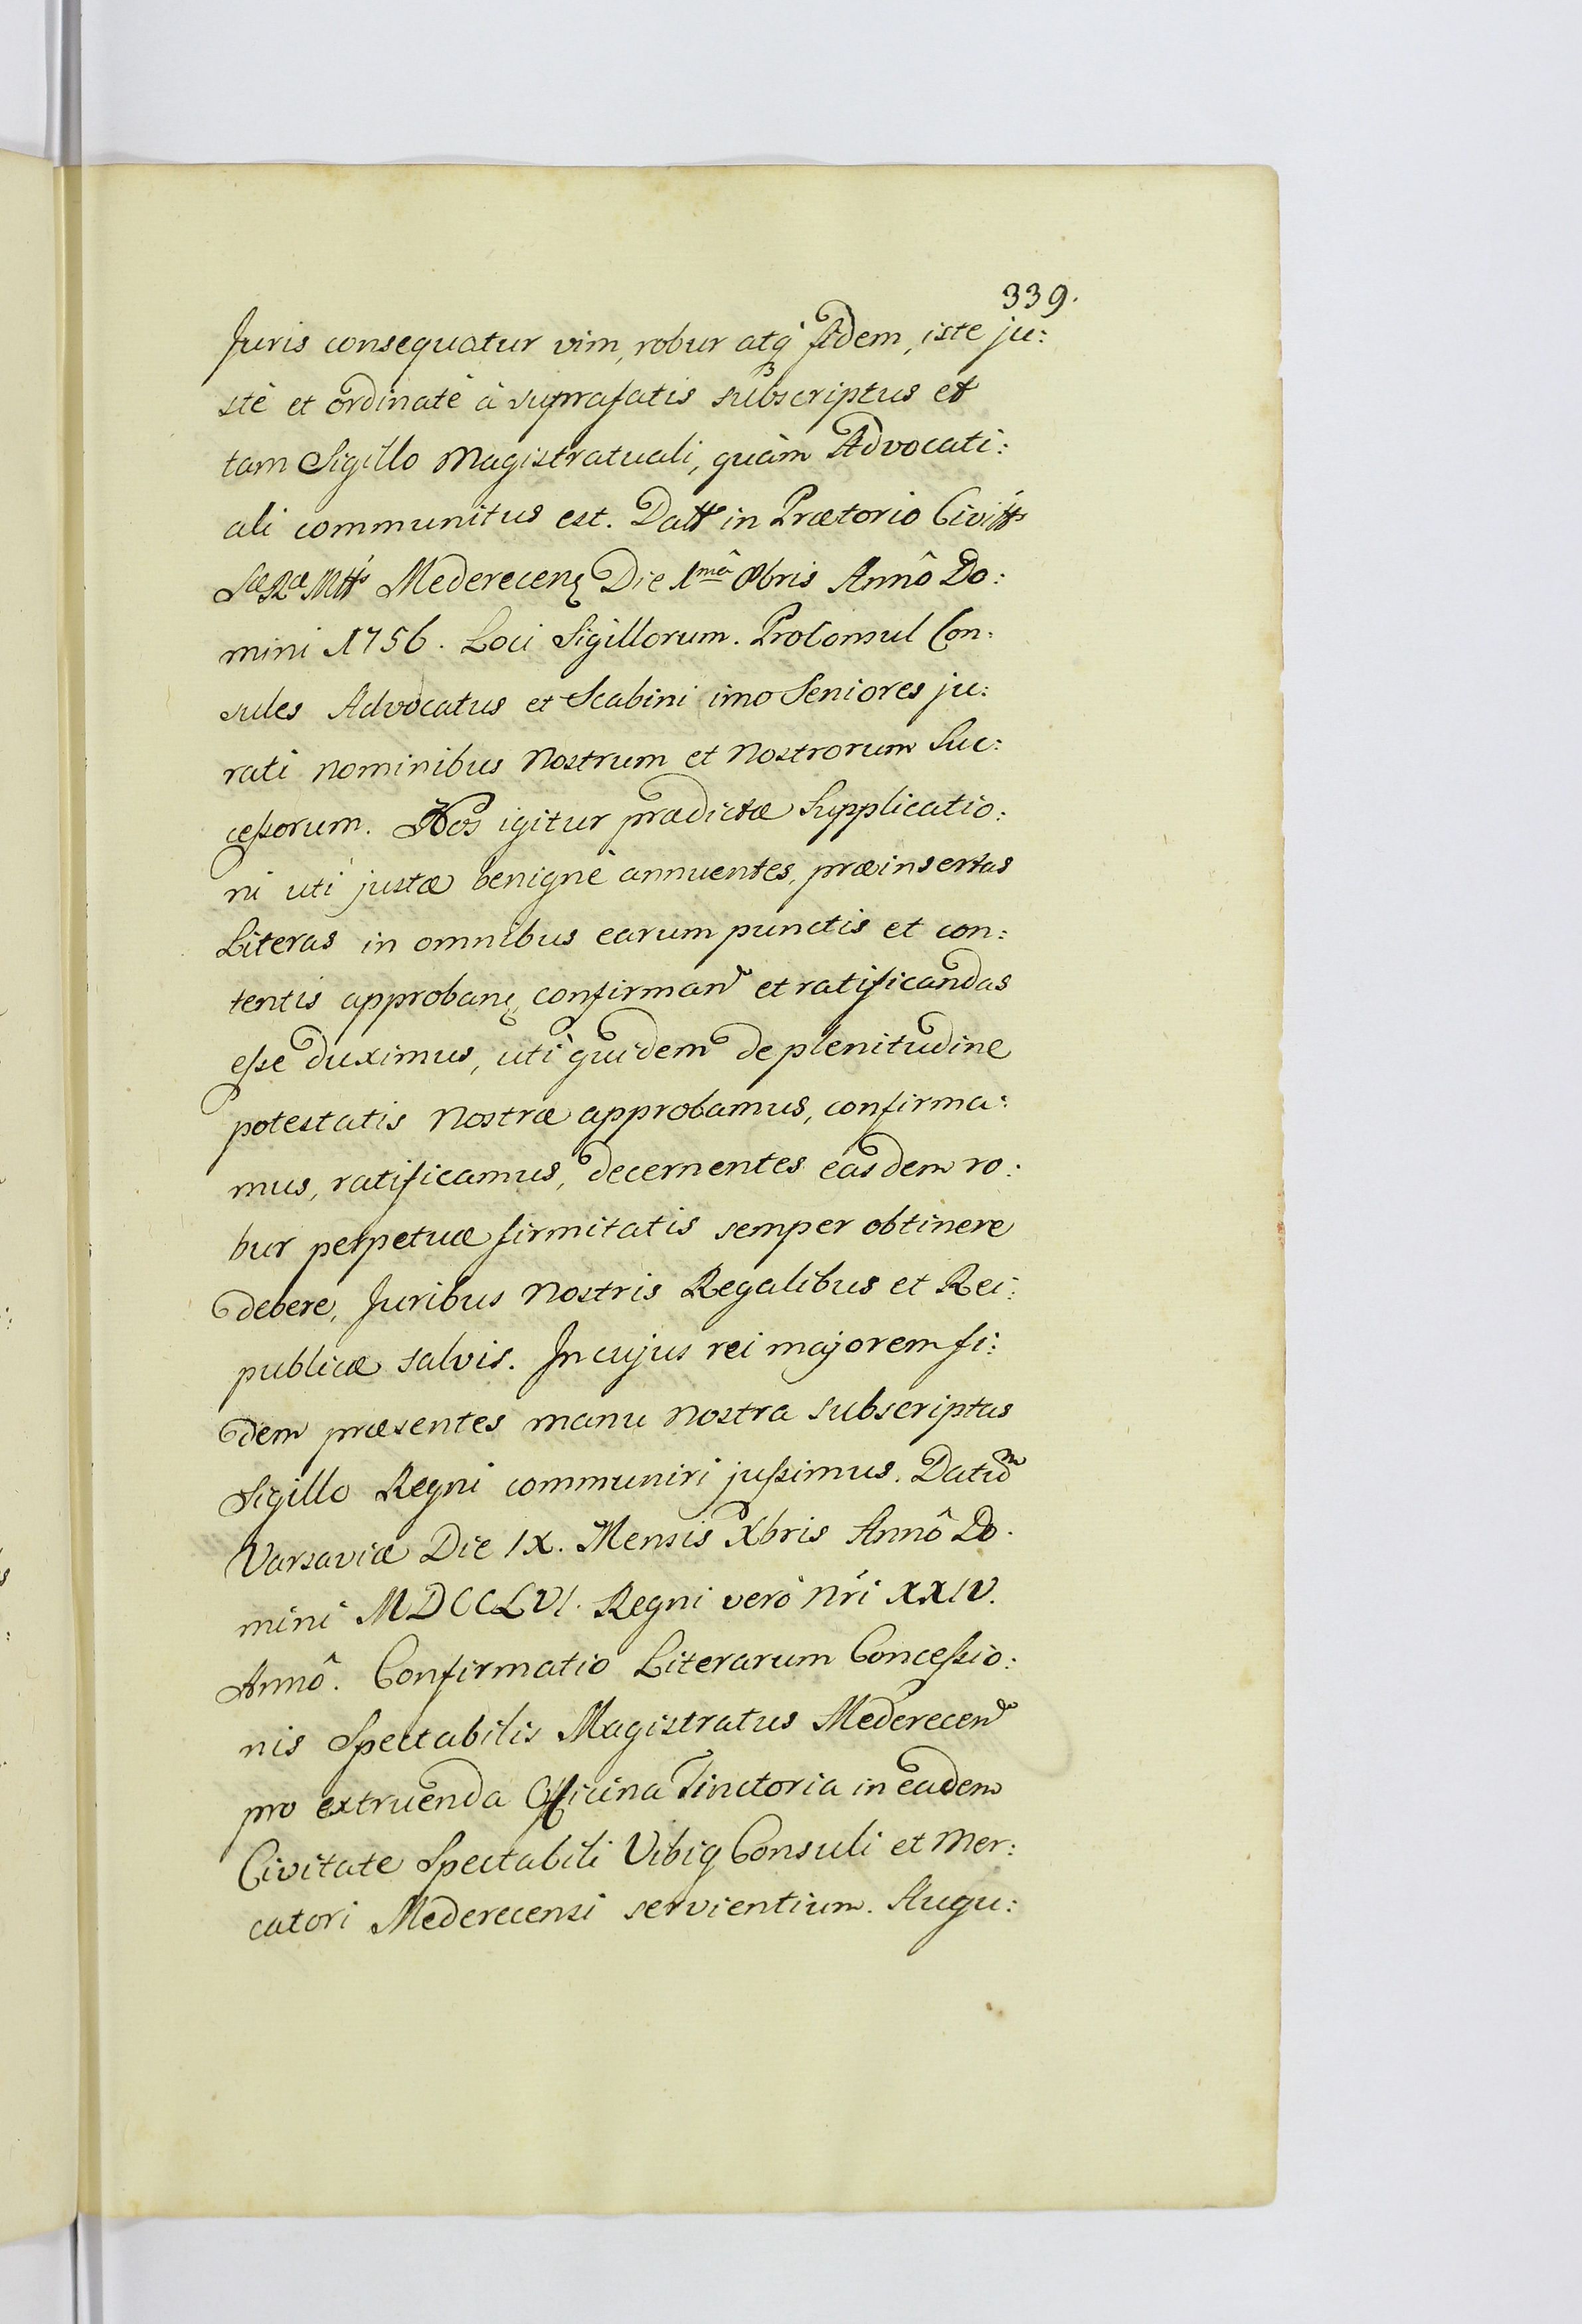 339.
Juris consequatur vim, robur atq́ fidem, iste ju:
stè et ordinatè à suprafatis subscriptus et
tam Sigillo Magistratuali, quàm Advocati:
ali communitus est. Datt in Prætorio Civitts
Sæ Ræ Mtts Mederecen Die 1mâ 8bris Annô Do:
mini 1756. Loci Sigillorum. ProConsul Con:
sules Advocatus et Scabini imo Seniores ju:
rati nominibus Nostrum et Nostrorum Suc:
ceßorum. Nos igitur prædictæ Supplicatio:
ni uti justæ benignè annuentes, præinsertas
Literas in omnibus earum punctis et con:
tentis approban, confirmand et ratificandas
eße duximus, uti quidem de plenitudine
potestatis Nostræ approbamus, confirma:
mus, ratificamus, decernentes easdem ro:
bur perpetuæ firmitatis semper obtinere
debere, Juribus Nostris Regalibus et Rei:
publicæ salvis. In cujus rei majorem fi:
dem præsentes manu Nostra subscriptas
Sigillo Regni communiri jußimus. Datum
Varsaviæ Die IX. Mensis Xbris Annô Do:
mini MDCCLVI. Regni verò Nri XXIV.
Annô. Confirmatio Literarum Conceßio:
nis Spectabilis Magistratus Mederecen
pro extruenda Officina Tinctoria in eadem
Civitate Spectabili Vibig Consuli et Mer:
catori Mederecensi servientium. Augu: